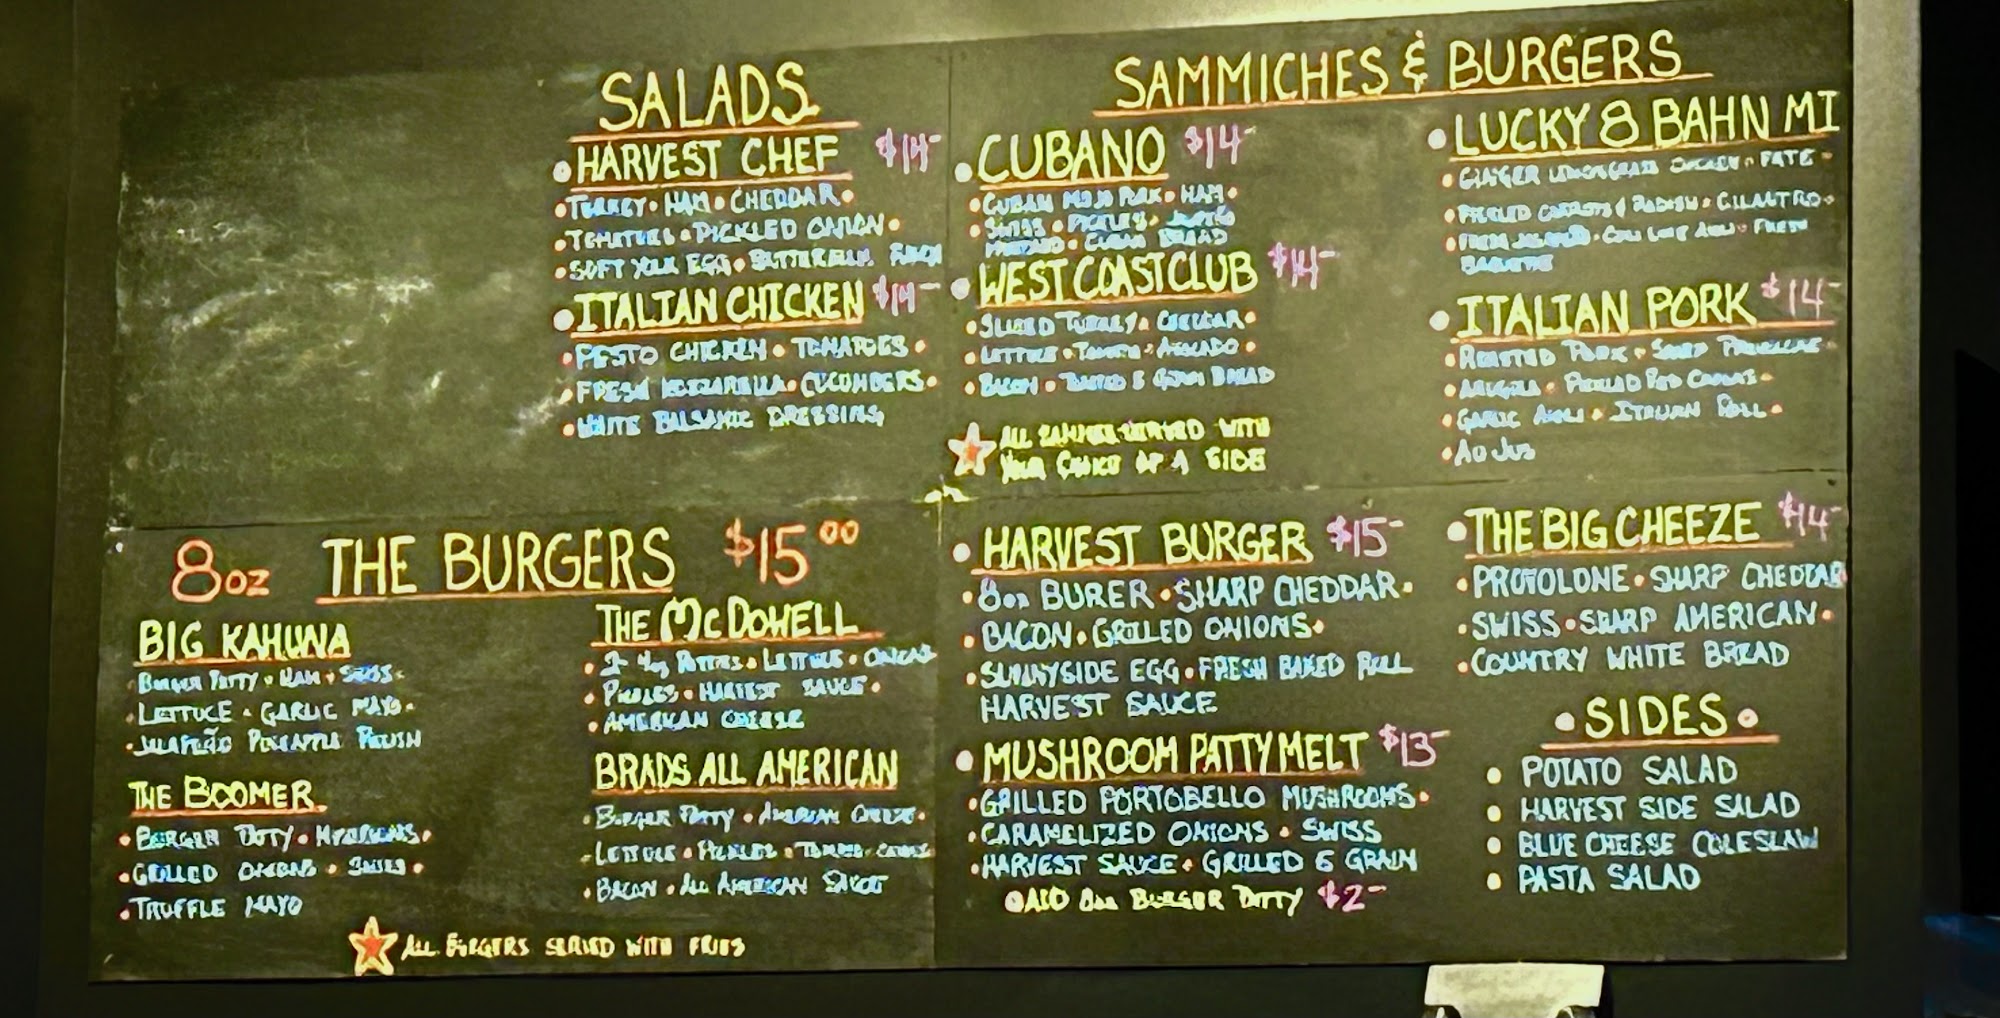 SALADS
HARVEST CHEF $14-
TURKEY • HAM • CHEDDAR •
TOMATOES • PICKLED ONION •
SOFT YOLK EGG • BUTTERMILK RANCH
ITALIAN CHICKEN $14-
PESTO CHICKEN • TOMATOES •
FRESH MOZZARELLA • CUCUMBERS •
WHITE BALSAMIC DRESSING
SAMMICHES & BURGERS
CUBANO $14-
CUBAN MOJO PORK • HAM •
SWISS • PICKLES •
MUSTARD • CUBAN BREAD
WEST COAST CLUB $14-
SLICED TURKEY • CHEDDAR •
LETTUCE • TOMATO • AVOCADO •
BACON • TOASTED 6 GRAIN BREAD
ALL SERVED WITH
YOUR CHOICE OF A SIDE
LUCKY 8 BAHN MI
GINGER LEMONGRASS CHICKEN • PATE •
PICKLED CARROTS & RADISH • CILANTRO •
FRESH JALAPEÑO • CHILI LIME AIOLI • FRESH
BAGUETTE
ITALIAN PORK $14-
ROASTED PORK • SHARP PROVOLONE •
ARUGULA • PICKLED RED ONIONS •
GARLIC AIOLI • ITALIAN ROLL •
AU JUS
8oz THE BURGERS $15.00
BIG KAHUNA
BURGER PATTY • HAM • SWISS •
LETTUCE • GARLIC MAYO •
JALAPEÑO PINEAPPLE RELISH
THE BOOMER
BURGER PATTY • MUSHROOMS •
GRILLED ONIONS • SWISS •
TRUFFLE MAYO
THE McDOWELL
2 ¼ PATTIES • LETTUCE • ONIONS
PICKLES • HARVEST SAUCE •
AMERICAN CHEESE
BRADS ALL AMERICAN
BURGER PATTY • AMERICAN CHEESE •
LETTUCE • PICKLES • TOMATO
BACON • ALL AMERICAN SAUCE
ALL BURGERS SERVED WITH FRIES
HARVEST BURGER $15-
8oz BURER • SHARP CHEDDAR •
BACON • GRILLED ONIONS •
SUNNYSIDE EGG • FRESH BAKED ROLL
HARVEST SAUCE
MUSHROOM PATTY MELT $13-
GRILLED PORTOBELLO MUSHROOMS •
CARAMELIZED ONIONS • SWISS
HARVEST SAUCE • GRILLED 6 GRAIN
ADD 8oz BURGER PATTY $2-
THE BIG CHEEZE $14-
PROVOLONE • SHARP CHEDDAR
SWISS • SHARP AMERICAN •
COUNTRY WHITE BREAD
SIDES
POTATO SALAD
HARVEST SIDE SALAD
BLUE CHEESE COLESLAW
PASTA SALAD